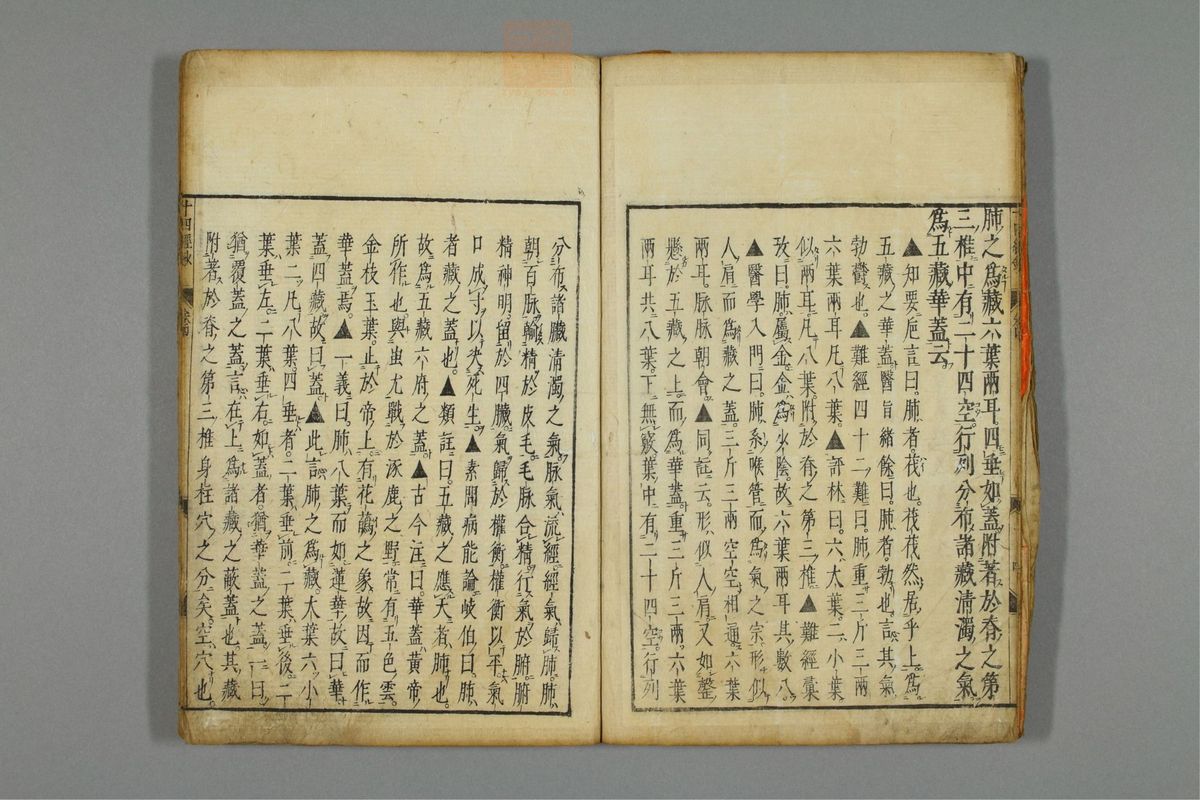 肺之爲藏六葉兩耳四垂如蓋附著於脊之第
三椎中有二十四空行列分布諸藏淸濁之氣
爲五藏華蓋云
▲知要巵言曰肺者筏也筏筏然居乎上爲
五藏之華蓋醫旨緒餘曰肺者勃也言其氣
勃鬱也▲難經四十二難曰肺重三斤三兩
六葉兩耳凡八葉▲評林曰六大葉二小葉
似兩耳凡八葉附於脊之第三椎▲難經彙
攷曰肺屬金金爲水陰故六葉兩耳其數八
▲醫學入門曰肺系喉管而爲氣之宗形似
人肩而爲藏之蓋三斤三兩空空相通六葉
兩耳脉脉朝會▲同註云形似人肩又如磬
懸於五藏之上而爲華蓋重三斤三兩六葉
兩耳共八葉下無竅葉中有二十四空行列
分布諸臟淸濁之氣脉氣流經經氣歸肺肺
朝百脉輸精於皮毛毛脉合精行氣於腑腑
精神明留於四臟氣歸於權衡權衡以平氣
口成寸以决死生▲素問病能論岐伯曰肺
者藏之蓋也▲類註曰五藏之應天者肺也
故爲五藏六府之蓋▲古今注曰華蓋黃帝
所作也與蚩尤戰於涿鹿之野常有五色雲
金枝玉葉止於帝上有花蘤之象故因而作
華蓋焉▲一義曰肺八葉而如蓮華故曰華
蓋四藏故曰蓋▲此言肺之爲藏大葉六小
葉二凡八葉四垂者二葉垂前二葉垂後二
葉垂左二葉垂右如蓋者猶華蓋之蓋一曰
猶覆蓋之蓋言在上爲諸藏之蔽蓋也其藏
附著於脊之第三椎身柱穴之分矣空穴也
十四經